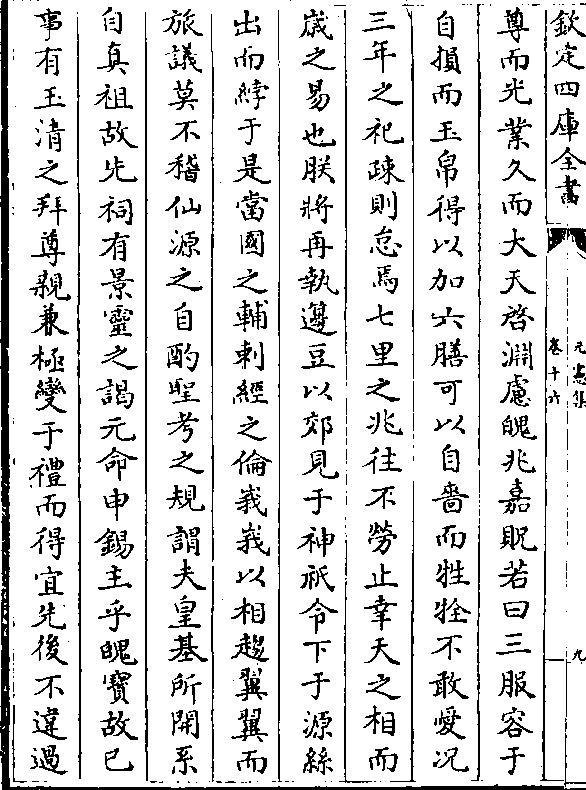 欽定四庫全書
元憲集
卷十六
九
尊而光業久而大天啓淵慮睨兆嘉貺若曰三服容于
自損而玉帛得以加六膳可以自嗇而牲牷不敢愛况
三年之祀疎則怠焉七里之兆往不勞止幸天之相而
歲之易也朕將再執籩豆以郊見于神祇令下于源絲
出而綍于是當國之輔刺經之倫峩峩以相趨翼翼而
旅議莫不稽仙源之自酌聖考之規謂夫皇基所開系
自真祖故先祠有景靈之謁元命申錫主乎瑰寶故已
事有玉清之拜尊親兼極變于禮而得宜先後不違過